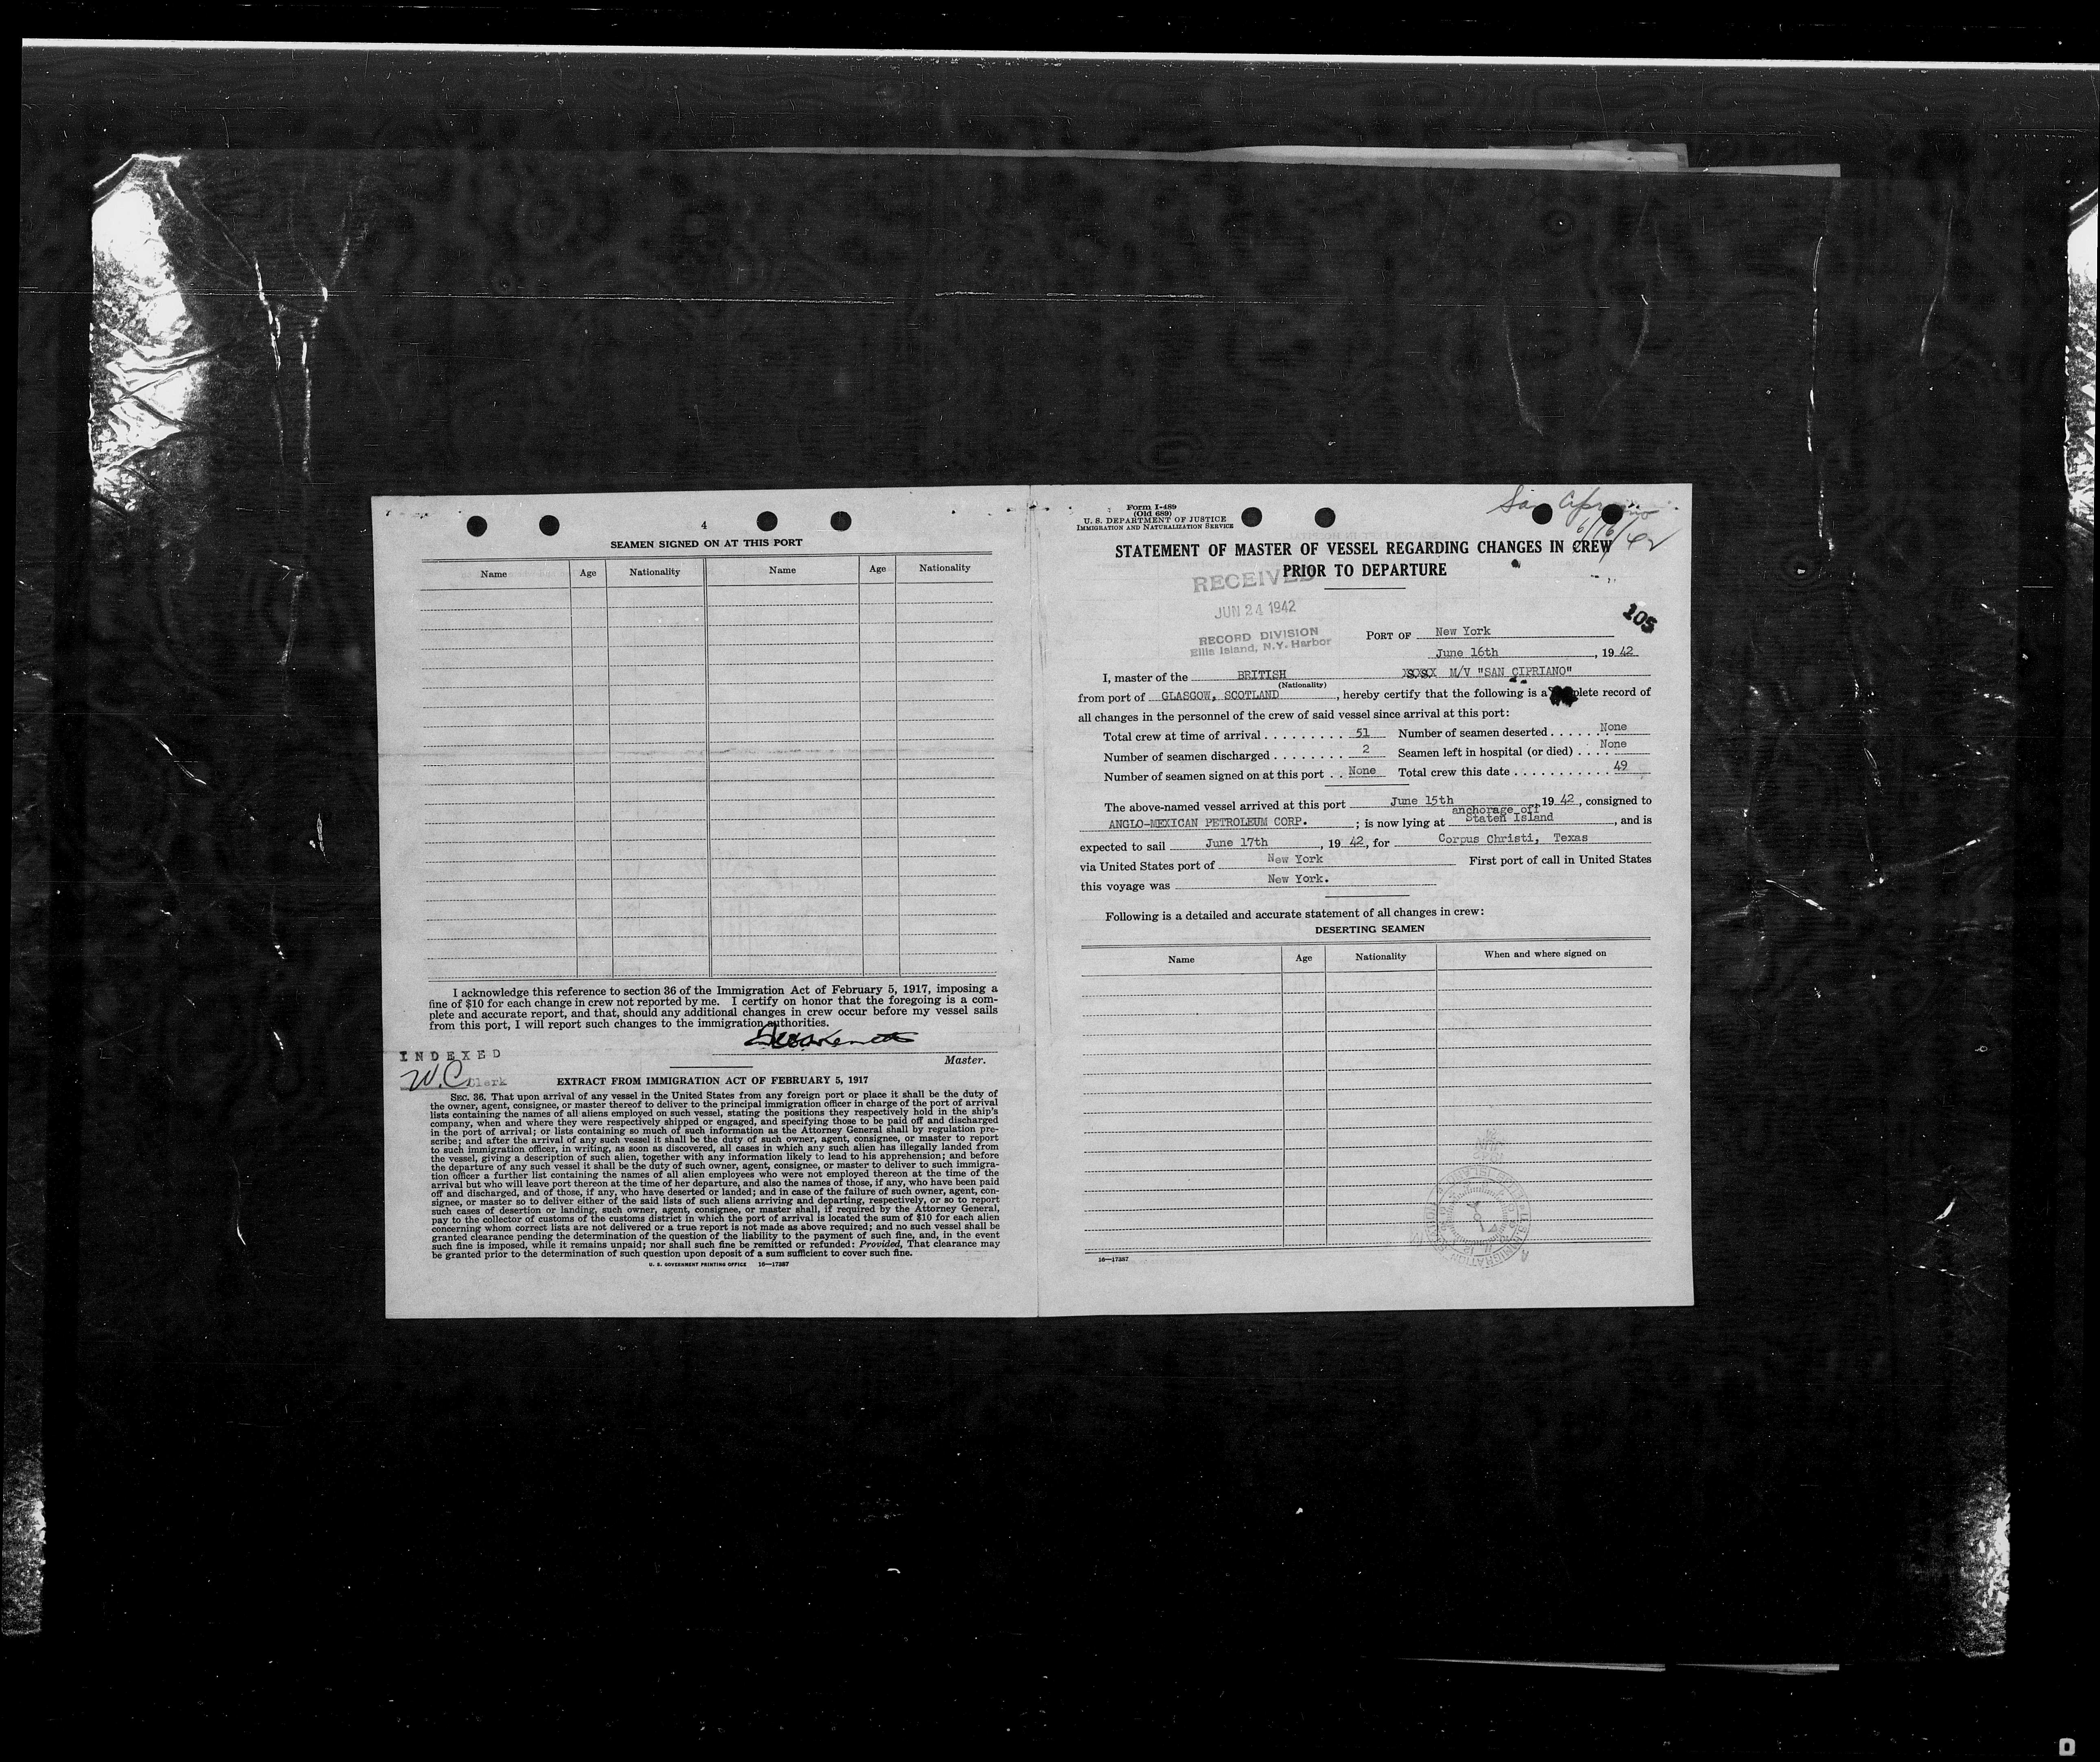 4
SEAMEN SIGNED ON AT THIS PORT
Name Age Nationality Name Age Nationality
I acknowledge this reference to section 36 of the Immigration Act of February 5, 1917, imposing a
fine of $10 for each change in crew not reported by me. I certify on honor that the foregoing is a com-
plete and accurate report, and that, should any additional changes in crew occur before my vessel sails
from this port, I will report such changes to the immigration authorities.
Master.
INDEXED
W.C. Clerk
EXTRACT FROM IMMIGRATION ACT OF FEBRUARY 5, 1917
SEC. 36. That upon arrival of any vessel in the United States from any foreign port or place it shall be the duty of
the owner, agent, consignee, or master thereof to deliver to the principal immigration officer in charge of the port of arrival
lists containing the names of all aliens employed on such vessel, stating the positions they respectively hold in the ship's
company, when and where they were respectively shipped or engaged, and specifying those to be paid off and discharged
in the port of arrival; or lists containing so much of such information as the Attorney General shall by regulation pre-
scribe; and after the arrival of any such vessel it shall be the duty of such owner, agent, consignee, or master to report
to such immigration officer, in writing, as soon as discovered, all cases in which any such alien has illegally landed from
the vessel, giving a description of such alien, together with any information likely to lead to his apprehension; and before
the departure of any such vessel it shall be the duty of such owner, agent, consignee, or master to deliver to such immigra-
tion officer a further list containing the names of all alien employees who were not employed thereon at the time of the
arrival but who will leave port thereon at the time of her departure, and also the names of those, if any, who have been paid
off and discharged, and of those, if any, who have deserted or landed; and in case of the failure of such owner, agent, con-
signee, or master so to deliver either of the said lists of such aliens arriving and departing, respectively, or so to report
such cases of desertion or landing, such owner, agent, consignee, or master shall, if required by the Attorney General,
pay to the collector of customs of the customs district in which the port of arrival is located the sum of $10 for each alien
concerning whom correct lists are not delivered or a true report is not made as above required; and no such vessel shall be
granted clearance pending the determination of the question of the liability to the payment of such fine, and, in the event
such fine is imposed, while it remains unpaid; nor shall such fine be remitted or refunded: Provided, That clearance may
be granted prior to the determination of such question upon deposit of a sum sufficient to cover such fine.
U. S. GOVERNMENT PRINTING OFFICE 16—17387
Form I-489
(Old 689)
U. S. DEPARTMENT OF JUSTICE
IMMIGRATION AND NATURALIZATION SERVICE
San Cipriano
6/16/42
STATEMENT OF MASTER OF VESSEL REGARDING CHANGES IN CREW
PRIOR TO DEPARTURE
RECEIVED
JUN 24 1942
RECORD DIVISION
Ellis Island, N.Y. Harbor
105
PORT OF New York
June 16th, 19 42
I, master of the BRITISH M/V "SAN CIPRIANO"
(Nationality)
from port of GLASGOW, SCOTLAND, hereby certify that the following is a complete record of
all changes in the personnel of the crew of said vessel since arrival at this port:
Total crew at time of arrival 51 Number of seamen deserted None
Number of seamen discharged 2 Seamen left in hospital (or died) None
Number of seamen signed on at this port None Total crew this date 49
The above-named vessel arrived at this port June 15th, 19 42, consigned to
ANGLO-MEXICAN PETROLEUM CORP. ; is now lying at anchorage off Staten Island, and is
expected to sail June 17th, 19 42, for Corpus Christi, Texas
via United States port of New York First port of call in United States
this voyage was New York.
Following is a detailed and accurate statement of all changes in crew:
DESERTING SEAMEN
Name Age Nationality When and where signed on
16—17387